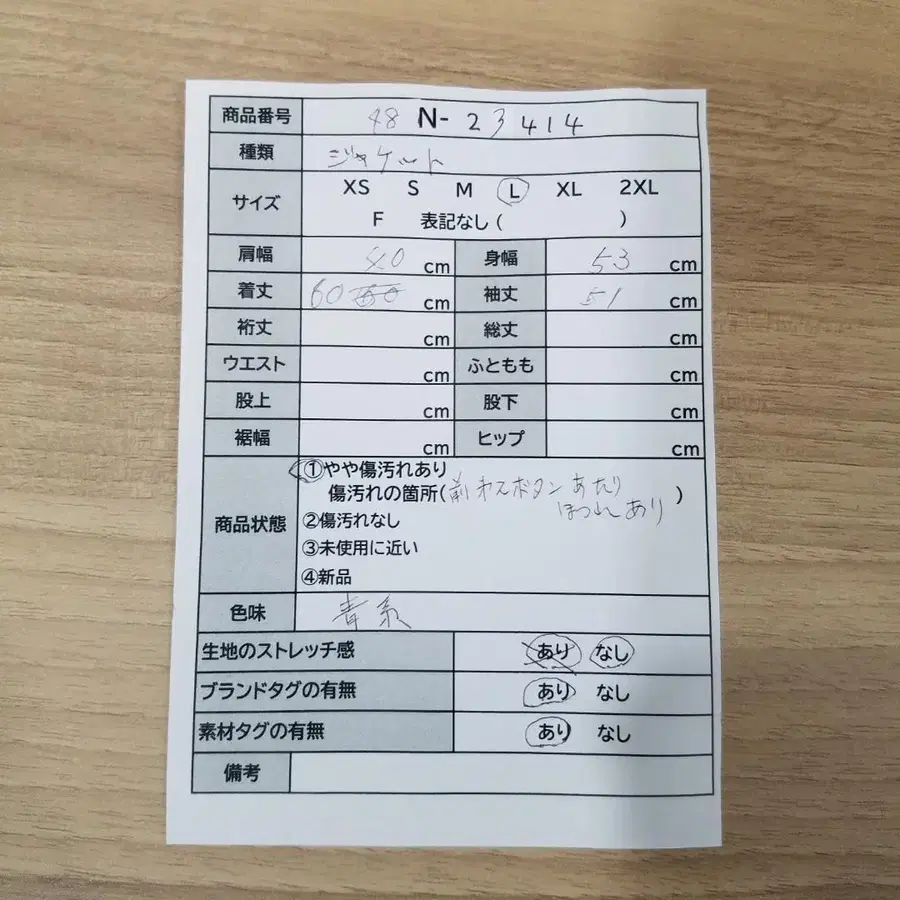 商品番号 48 N-23414
種類 ジャケット
サイズ XS S M L XL 2XL
F 表記なし( )
肩幅 40 cm 身幅 53 cm
着丈 60 cm 袖丈 51 cm
裄丈 cm 総丈 cm
ウエスト cm ふともも cm
股上 cm 股下 cm
裾幅 cm ヒップ cm
商品状態 ①やや傷汚れあり
傷汚れの箇所(前 ボタンあたり )
ほつれあり
②傷汚れなし
③未使用に近い
④新品
色味 青系
生地のストレッチ感 あり なし
ブランドタグの有無 あり なし
素材タグの有無 あり なし
備考